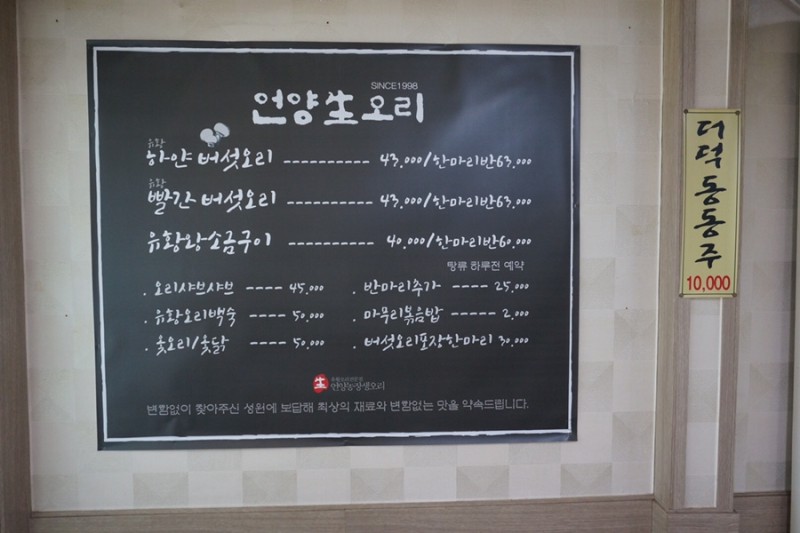 SINCE1998
언양生오리
유황
하얀 버섯오리 ---------- 43,000/한마리반63,000
유황
빨간 버섯오리 ---------- 43,000/한마리반63,000
유황왕소금구이 ---------- 40,000/한마리반60,000
탕류 하루전 예약
. 오리샤브샤브 ---- 45,000
. 유황오리백숙 ---- 50,000
. 옻오리/옻닭 ---- 50,000
. 반마리추가 ---- 25,000
. 마무리볶음밥 ---- 2,000
. 버섯오리포장한마리 30,000
生
언양농장생오리
변함없이 찾아주신 성원에 보답해 최상의 재료와 변함없는 맛을 약속드립니다.
더덕동동주
10,000